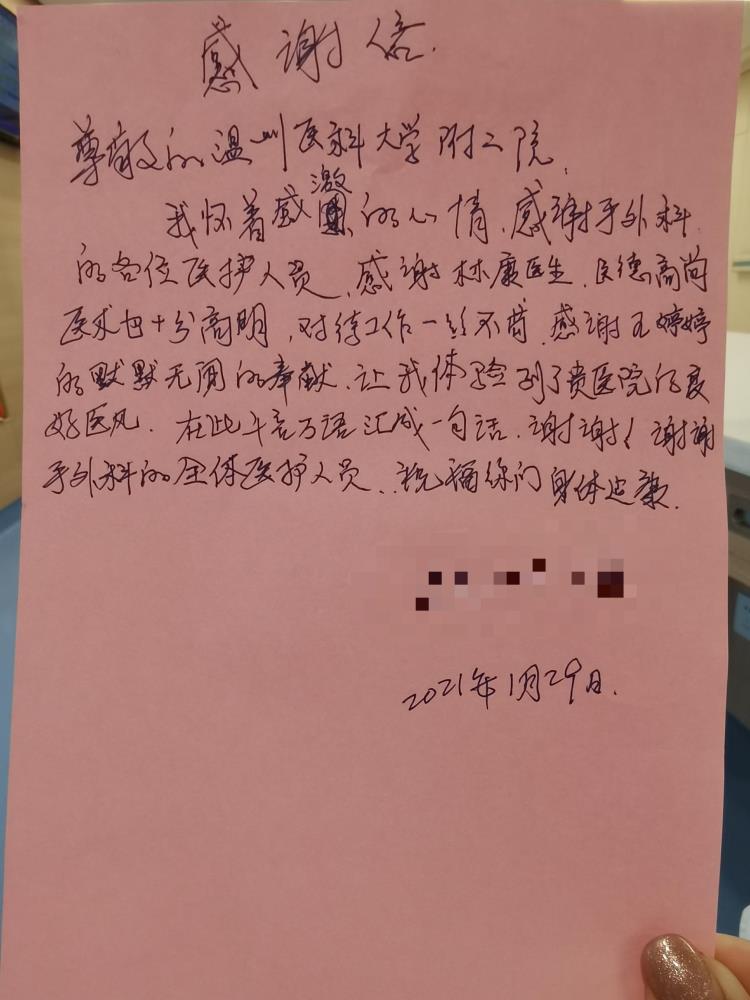 感谢信.
尊敬的温州医科大学附二院,
我怀着感激的心情,感谢手外科
的各位医护人员,感谢林康医生,医德高尚
医术也十分高明,对待工作一丝不苟,感谢王婷婷
的默默无闻的奉献,让我体验到了贵医院的良
好医风.在此千言万语汇成一句话,谢谢!谢谢
手外科的全体医护人员,祝福你们身体健康.
2021年1月29日.